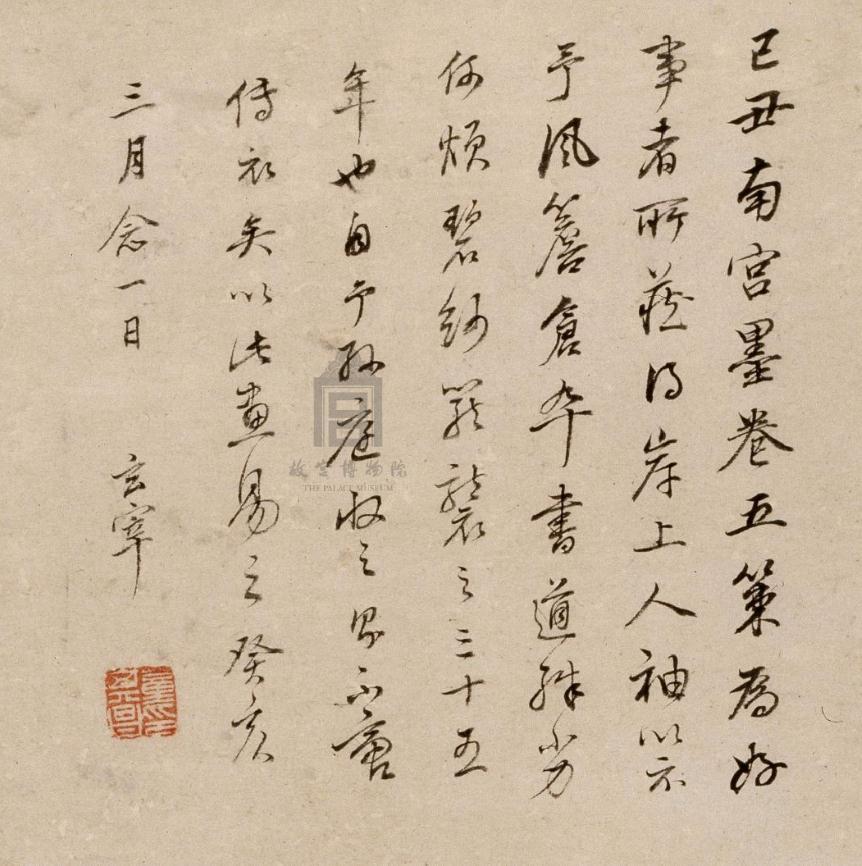 己丑南宫墨卷五策為好
事者所藏得岸上人袖以示
予風簷倉卒書道殊劣
何煩碧紗籠襲之三十五
年也自予孫庭收之不啻
傳衣矣以此畫易之癸亥
三月念一日 玄宰
故宫博物院
THE PALACE MUSEUM